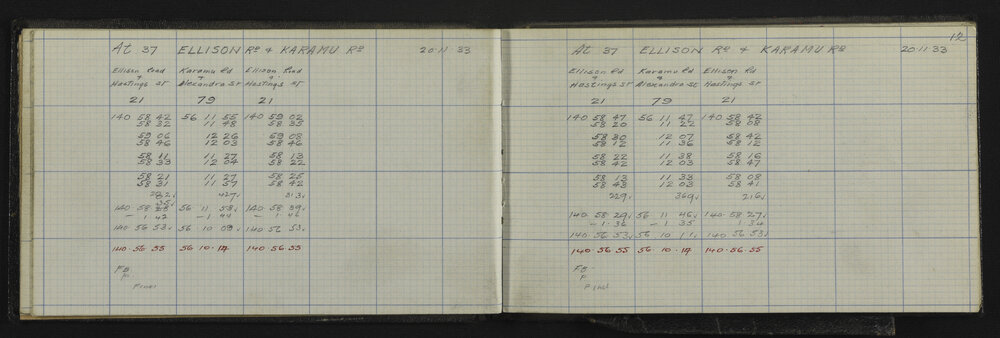 At 37 ELLISON RD & KARAMU RD 20·11·33
Ellison Road Karamu Rd Ellison Road
& & &
Hastings St Alexandra St Hastings St
21 79 21
140 58 42 56 11 55 140 59 02
58 32 11 48 58 39
59 06 12 26 59 08
58 46 12 03 58 46
58 11 11 27 58 13
58 33 12 04 58 22
58 21 11 27 58 25
58 31 11 37 58 42
427 313
140 58 56 11 53 140 58 39
- 1 42 - 1 44 - 1 46
140 56 53 56 10 09 140 56 53
140·56·55 56·10·14 140·56·55
FB
F
Final
12
At 37 ELLISON RD & KARAMU RD 20·11·33
Ellison Rd Karamu Rd Ellison Rd
& & &
Hastings St Alexandra St Hastings St
21 79 21
140 58 47 56 11 47 140 58 42
58 20 11 22 58 08
58 30 12 07 58 42
58 12 11 36 58 12
58 22 11 38 58 16
58 42 12 03 58 47
58 13 11 33 58 08
58 43 12 03 58 41
229 369 216
140·58·29 56 11 46 140·58·27
- 1·36 - 1 35 1 34
140·56·53 56 10 11 140 56 53
140·56·55 56·10·14 140·56·55
FB
F
Final